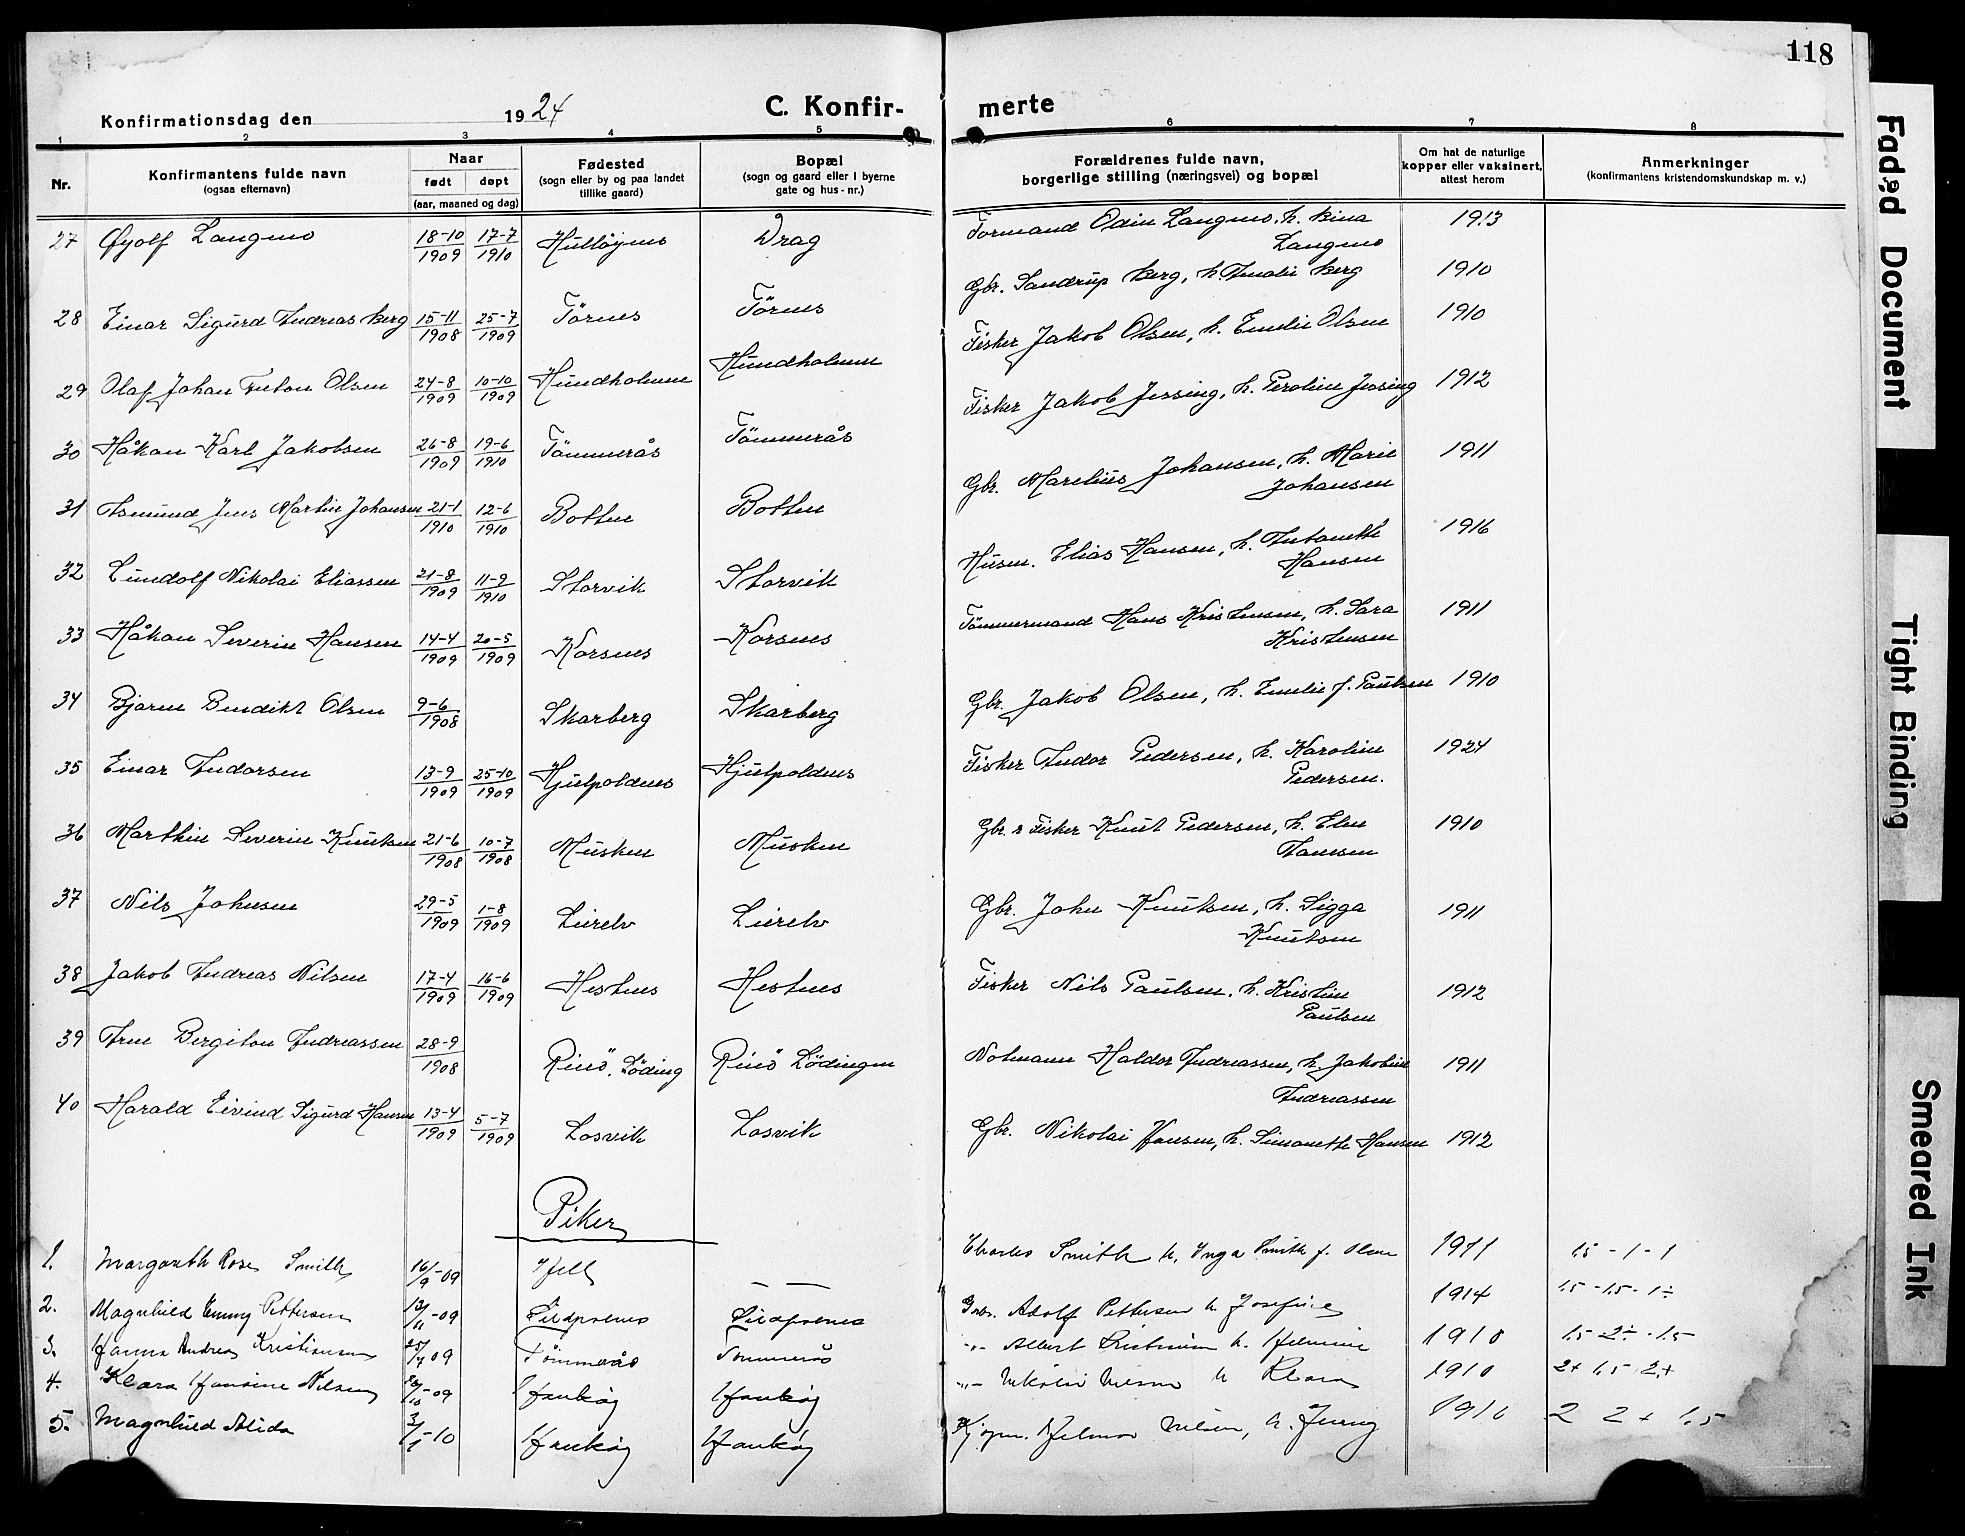 118
Konfirmationsdag den 1924
C. Konfir-
merte
1 2 3 4 5 6 7 8
Nr.
Konfirmantens fulde navn
(ogsaa efternavn)
Naar
født døpt
(aar, maaned og dag)
Fødested
(sogn eller by og paa landet
tillike gaard)
Bopæl
(sogn og gaard eller i byerne
gate og hus-nr.)
Forældrenes fulde navn,
borgerlige stilling (næringsvei) og bopæl
Om hat de naturlige
kopper eller vaksinert,
attest herom
Anmerkninger
(konfirmantens kristendomskundskap m. v.)
27 Øyolf Langmo 18-10 1909 17-7 1910 Hulløymo Drag Formand Odin Langmo, h. Bina 1913
Langmo
28 Einar Sigurd Andreas Berg 15-11 1908 25-7 1909 Tørnes Tørnes Gbr. Sandrup Berg, h. Amalie Berg 1910
29 Olaf Johan Anton Olsen 24-8 1909 10-10 1909 Hundholmen Hundholmen Fisker Jakob Olsen, h. Emelie Olsen 1910
30 Håkon Karl Jakobsen 26-8 1909 19-6 1910 Tømmerås Tømmerås Fisker Jakob Jessing, h. Peroline Jessing 1912
31 Asmund Jens Martin Johansen 21-1 1910 12-6 1910 Botten Botten Gbr. Marelius Johansen, h. Marie 1911
Johansen
32 Lundolf Nikolai Eliassen 21-8 1909 11-9 1910 Storvik Storvik Husm. Elias Hansen, h. Antonette 1916
Hansen
33 Håkon Severin Hansen 14-4 1909 20-5 1909 Korsnes Korsnes Tømmermand Hans Kristensen, h. Sara 1911
Kristensen
34 Bjarne Bendikt Olsen 9-6 1908 Skarberg Skarberg Gbr. Jakob Olsen, h. Emelie f. Paulsen 1910
35 Einar Andorsen 13-9 1909 25-10 1909 Hjulpoldnes Hjulpoldnes Fisker Andor Pedersen, h. Karolin 1924
Pedersen.
36 Marthin Severin Knutsen 21-6 1908 10-7 1908 Musken Musken Gbr. & Fisker Knut Pedersen, h. Elen 1910
37 Nils Johnsen 29-5 1909 1-8 1909 Lierelv Lierelv Gbr. John Knutsen, h. Sigga 1911
Knutsen
38 Jakob Andreas Nilsen 17-4 1909 16-6 1909 Hestnes Hestnes Fisker Nils Paulsen, h. Kristine 1912
Paulsen
39 Arne Bergiton Andreassen 28-9 1908 Rinö, Löding Rinö Lödingen Notmann Haldor Andreassen, h. Jakobine 1911
Andreassen
40 Harald Eivind Sigurd Hansen 13-4 1909 5-7 1909 Losvik Losvik Gbr. Nikolai Hansen, h. Simonette Hansen 1912
Piker
1. Margareth Rose Smith 16/9-09 Fjell — — Charles Smith h. Inga Smith f. Olsen 1911 1.5 - 1 - 1
2. Magnhild Emmy Pettersen 12/11-09 Adolf Pettersen h Josefine 1914 1.5 - 1.5 - 1÷
3. Hanna Andrea Kristiansen 25/7 09 Tømmerås Tømmerås -"- Albert Kristiansen h. Hjelmine 1910 1.5 - 2÷ - 1.5
4. Klara Hansine Nilsen -09 Haukøy Haukøy -"- Nikolai Nilsen h Klara 1910 2+ 1.5 2+
5. Magnhild Alida 3/1-10 Haukøy Haukøy Kjøpm. Hjelmar Nilsen, h. Jenny 1910 2 2+ 1.5
Faded Document
Tight Binding
Smeared Ink